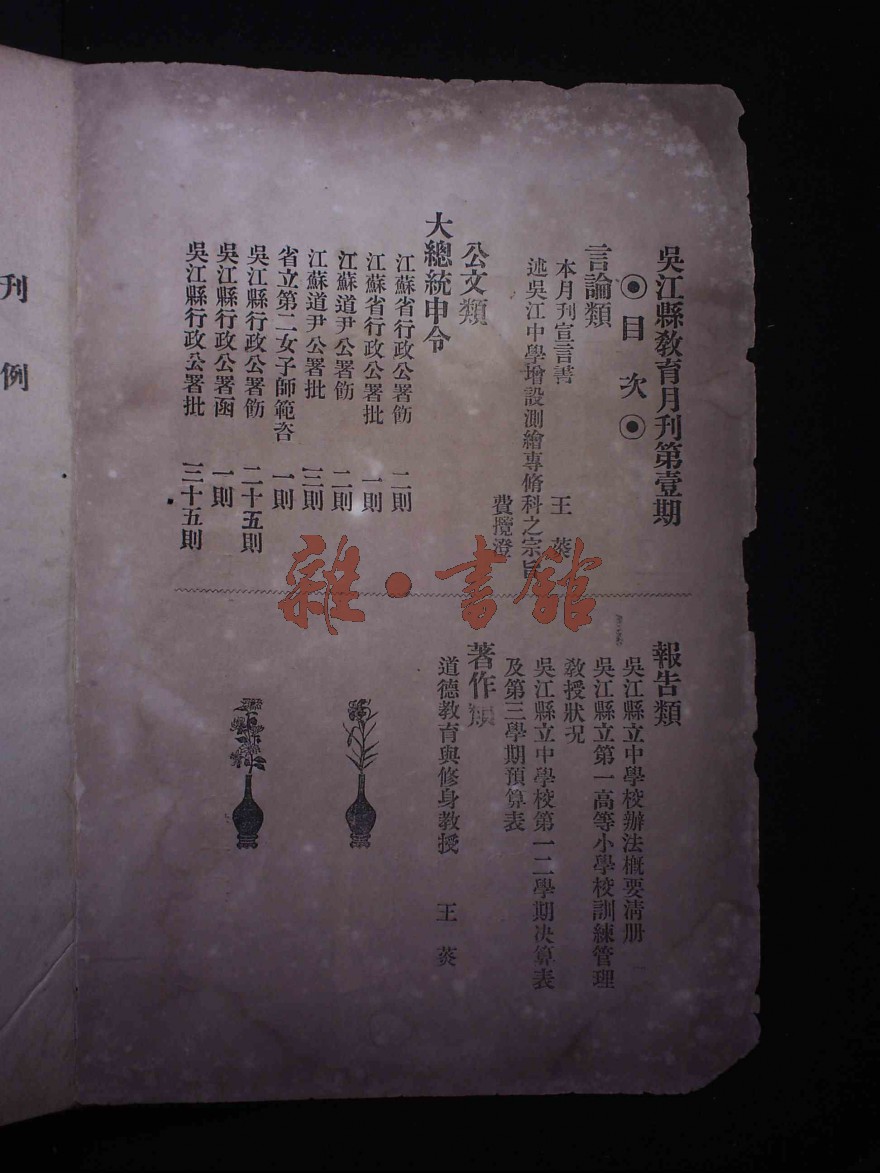 吳江縣敎育月刊第壹期
目次
言論類
本月刊宣言書 王葵
述吳江中學增設測繪專脩科之宗旨
費攬澄
公文類
大總統申令
江蘇省行政公署飭 二則
江蘇省行政公署批 一則
江蘇道尹公署飭 二則
江蘇道尹公署批 三則
省立第二女子師範咨 一則
吳江縣行政公署飭 二十五則
吳江縣行政公署函 一則
吳江縣行政公署批 三十五則
報告類
吳江縣立中學校辦法概要淸册
吳江縣立第一高等小學校訓練管理
敎授狀况
吳江縣立中學校第一二學期决算表
及第三學期預算表
著作類
道德敎育與修身敎授 王葵
刊例
雜·書館